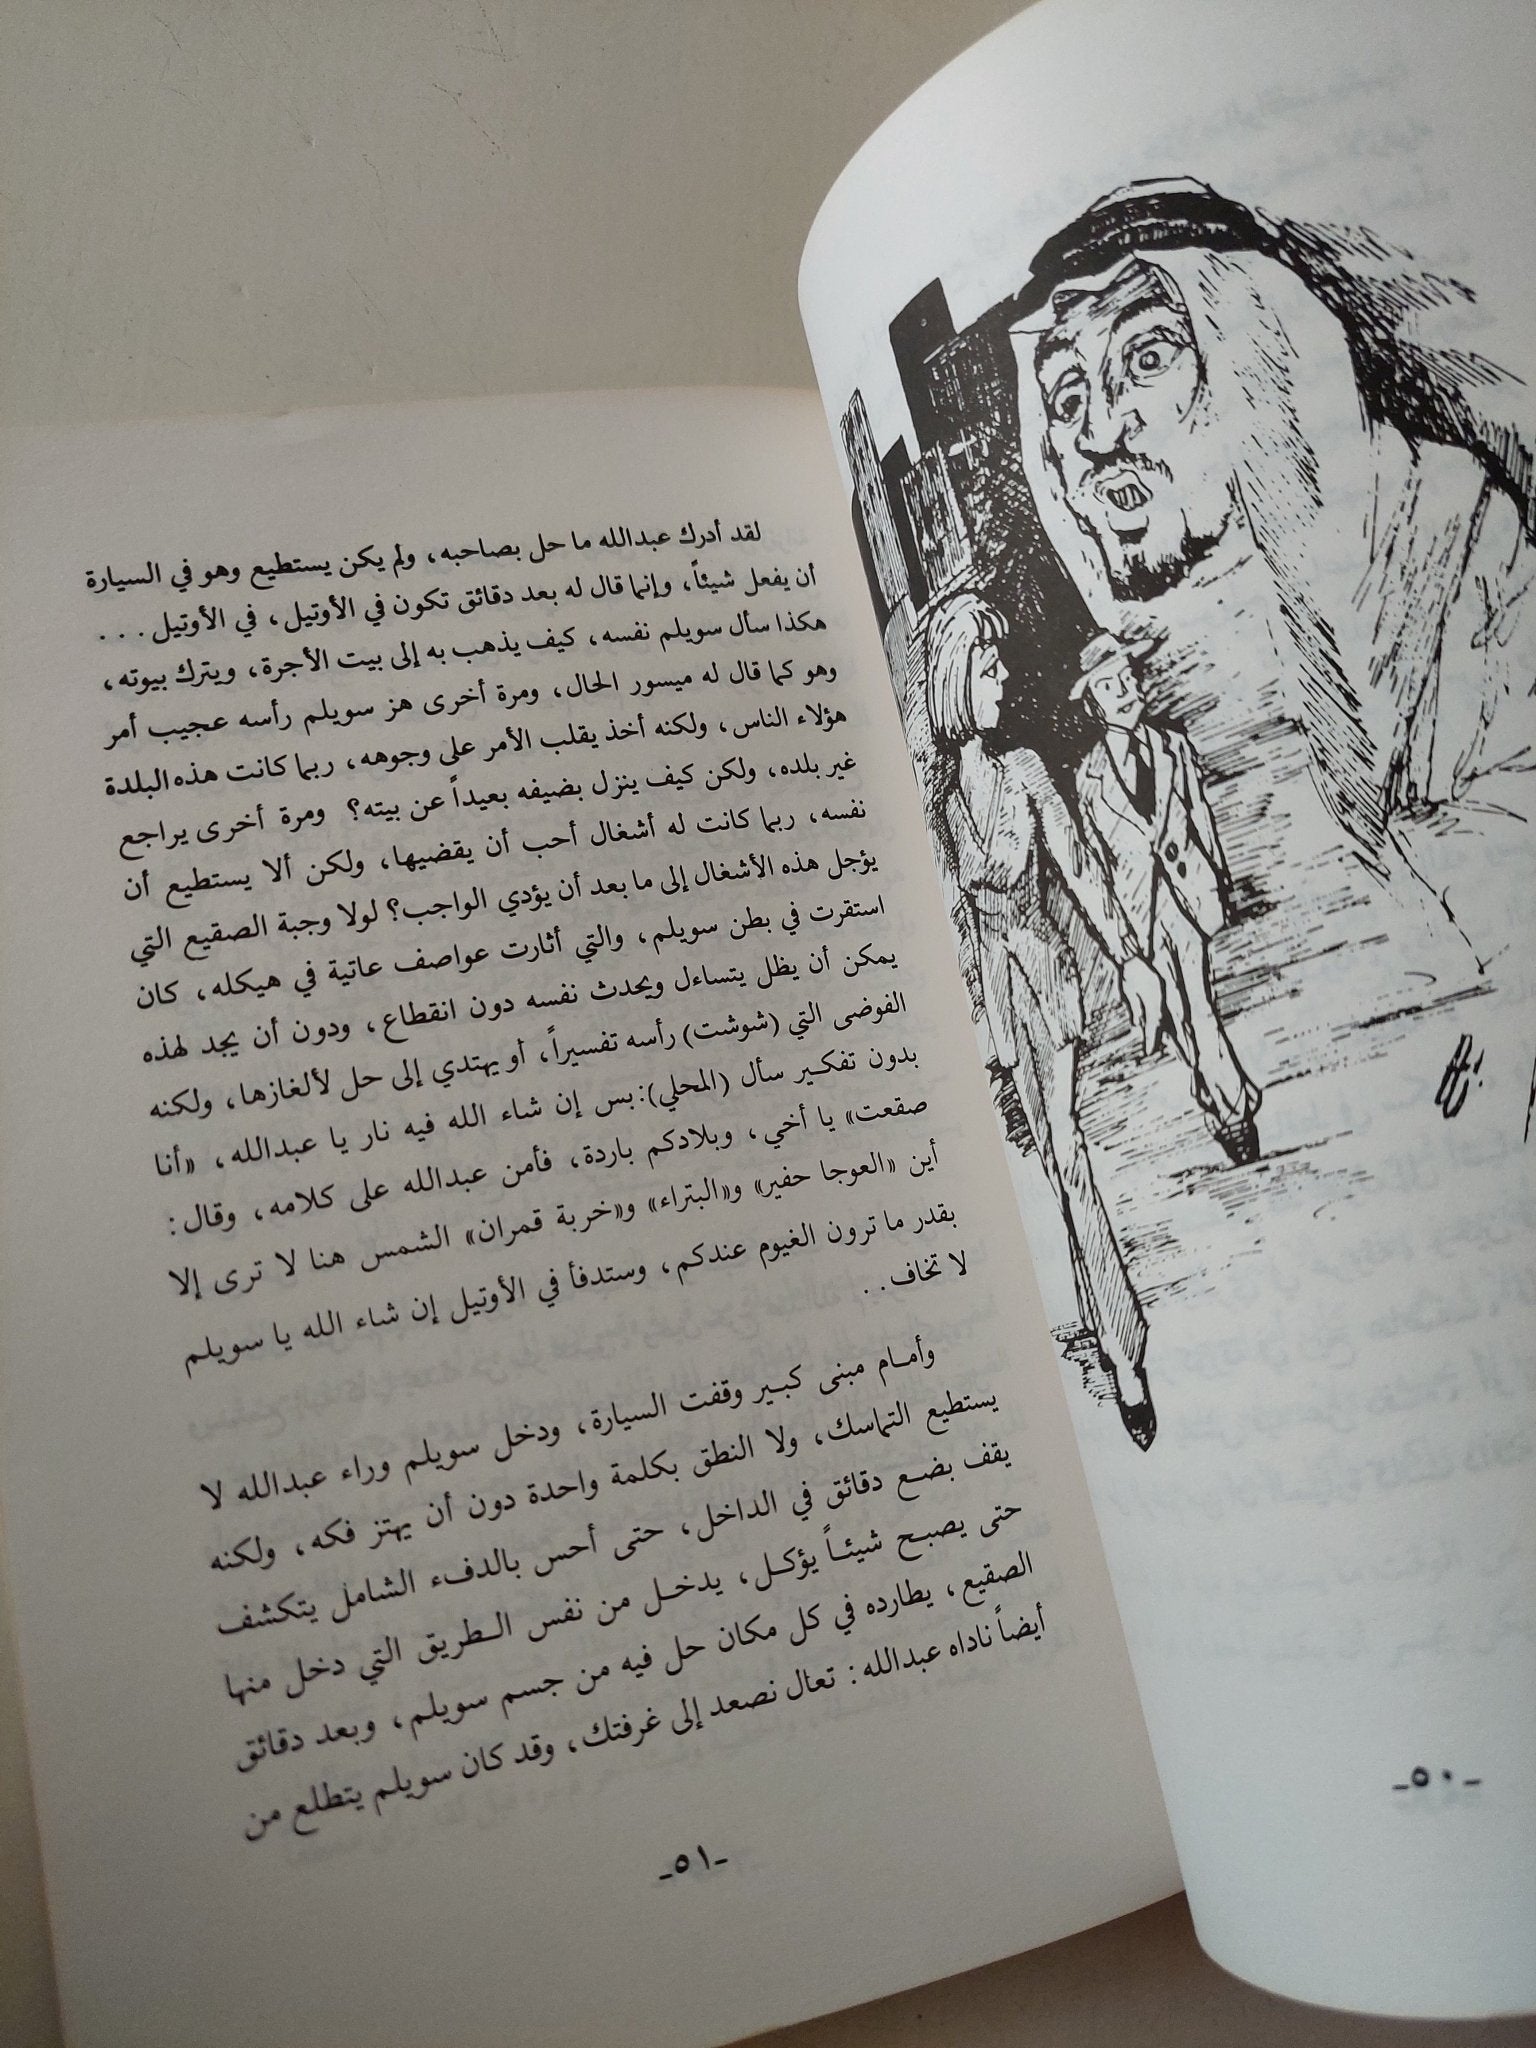 لقد أدرك عبدالله ما حل بصاحبه، ولم يكن يستطيع وهو في السيارة
أن يفعل شيئاً، وإنما قال له بعد دقائق تكون في الأوتيل، في الأوتيل . . .
هكذا سأل سويلم نفسه، كيف يذهب به إلى بيت الأجرة، ويترك بيوته،
وهو كما قال له ميسور الحال، ومرة أخرى هز سويلم رأسه عجيب أمر
هؤلاء الناس، ولكنه أخذ يقلب الأمر على وجوهه، ربما كانت هذه البلدة
غير بلده، ولكن كيف ينزل بضيفه بعيداً عن بيته؟ ومرة أخرى يراجع
نفسه، ربما كانت له أشغال أحب أن يقضيها، ولكن ألا يستطيع أن
يؤجل هذه الأشغال إلى ما بعد أن يؤدي الواجب؟ لولا وجبة الصقيع التي
استقرت في بطن سويلم، والتي أثارت عواصف عاتية في هيكله، كان
يمكن أن يظل يتساءل ويحدث نفسه دون انقطاع، ودون أن يجد لهذه
الفوضى التي (شوشت) رأسه تفسيراً، أو يهتدي إلى حل لألغازها، ولكنه
بدون تفكير سأل (المحلي): بس إن شاء الله فيه نار يا عبدالله، «أنا
صقعت» يا أخي، وبلادكم باردة، فأمن عبدالله على كلامه، وقال:
أين «العوجا حفير» و«البتراء» و«خربة قمران» الشمس هنا لا ترى إلا
بقدر ما ترون الغيوم عندكم، وستدفأ في الأوتيل إن شاء الله يا سويلم
لا تخاف . .
وأمام مبنى كبير وقفت السيارة، ودخل سويلم وراء عبدالله لا
يستطيع التماسك، ولا النطق بكلمة واحدة دون أن يهتز فكه، ولكنه
يقف بضع دقائق في الداخل، حتى أحس بالدفء الشامل يتكشف
حتى يصبح شيئاً يؤكل، يدخل من نفس الطريق التي دخل منها
الصقيع، يطارده في كل مكان حل فيه من جسم سويلم، وبعد دقائق
أيضاً ناداه عبدالله: تعال نصعد إلى غرفتك، وقد كان سويلم يتطلع من
-٥١-
-٥٠-